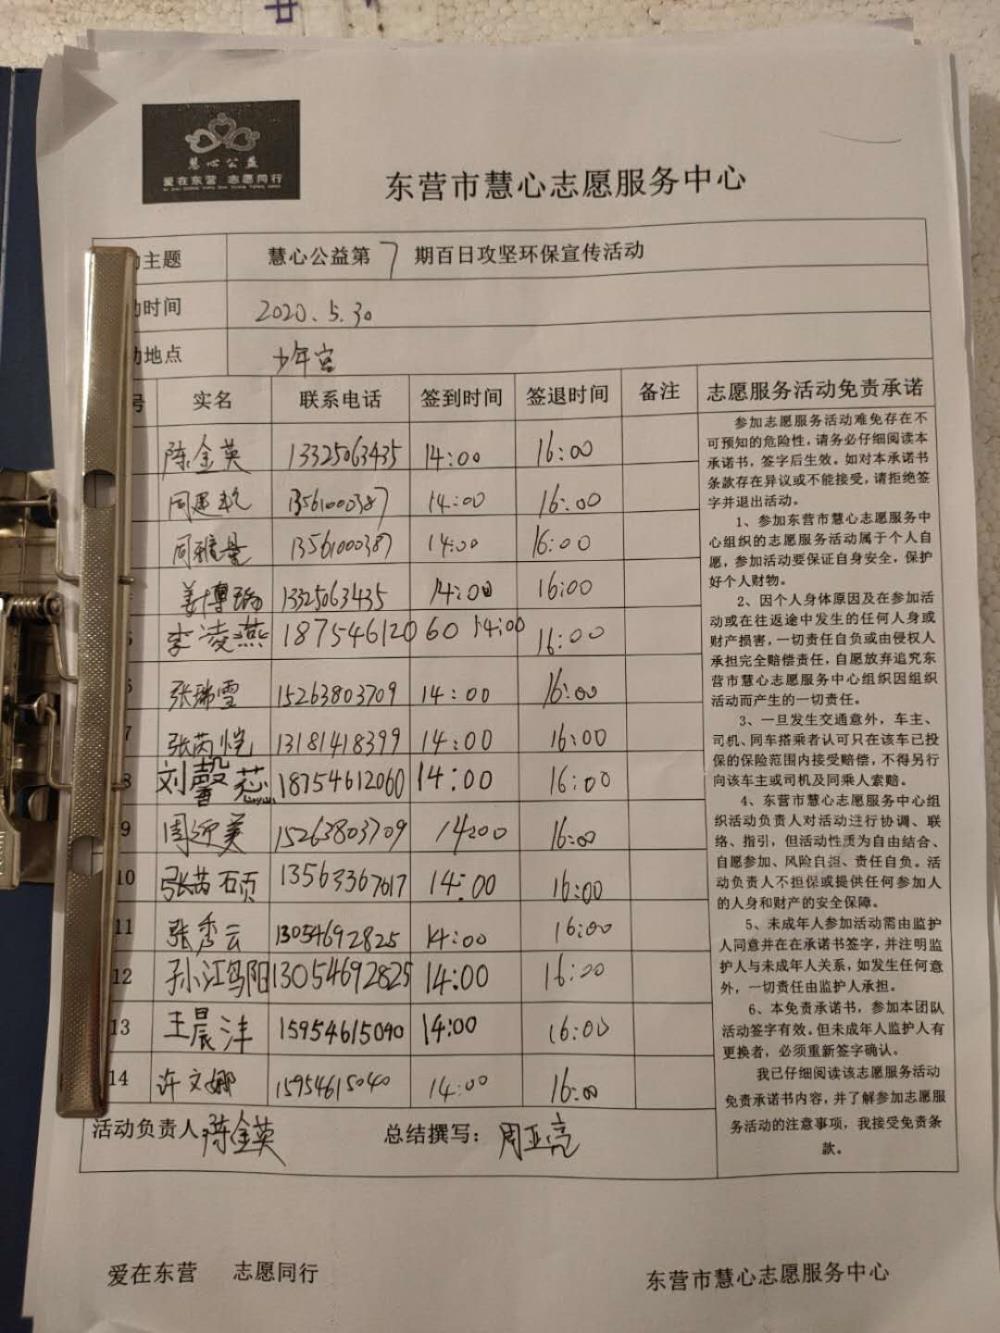 慧心公益
爱在东营 志愿同行
东营市慧心志愿服务中心
主题 慧心公益第7期百日攻坚环保宣传活动
动时间 2020.5.30
动地点 少年宫
号 实名 联系电话 签到时间 签退时间 备注 志愿服务活动免责承诺
陈金英 13325063435 14:00 16:00
13561000387 14:00 16:00
13561000387 14:00 16:00
姜博 13325063435 14:00 16:00
李凌燕 18754612060 14:00 16:00
张瑞雪 15263803709 14:00 16:00
7 张芮恺 13181418399 14:00 16:00
8 刘馨蕊 18754612060 14:00 16:00
9 周迎美 15263803709 14:00 16:00
10 张芮硕 13563367617 14:00 16:00
11 张秀云 13054692825 14:00 16:00
12 孙江鸟阳 13054692825 14:00 16:00
13 王晨沣 15954615090 14:00 16:00
14 许文娜 15954615040 14:00 16:00
参加志愿服务活动难免存在不
可预知的危险性，请务必仔细阅读本
承诺书，签字后生效。如对本承诺书
条款存在异议或不能接受，请拒绝签
字并退出活动。
1、参加东营市慧心志愿服务中
心组织的志愿服务活动属于个人自
愿，参加活动要保证自身安全，保护
好个人财物。
2、因个人身体原因及在参加活
动或在往返途中发生的任何人身或
财产损害，一切责任自负或由侵权人
承担完全赔偿责任，自愿放弃追究东
营市慧心志愿服务中心组织因组织
活动而产生的一切责任。
3、一旦发生交通意外，车主、
司机、同车搭乘者认可只在该车已投
保的保险范围内接受赔偿，不得另行
向该车主或司机及同乘人索赔。
4、东营市慧心志愿服务中心组
织活动负责人对活动进行协调、联
络、指引，但活动性质为自由结合、
自愿参加、风险自担、责任自负。活
动负责人不担保或提供任何参加人
的人身和财产的安全保障。
5、未成年人参加活动需由监护
人同意并在在承诺书签字，并注明监
护人与未成年人关系，如发生任何意
外，一切责任由监护人承担。
6、本免责承诺书，参加本团队
活动签字有效。但未成年人监护人有
更换者，必须重新签字确认。
我已仔细阅读该志愿服务活动
免责承诺书内容，并了解参加志愿服
务活动的注意事项，我接受免责条
款。
活动负责人 陈金英 总结撰写：周亚亮
爱在东营 志愿同行 东营市慧心志愿服务中心